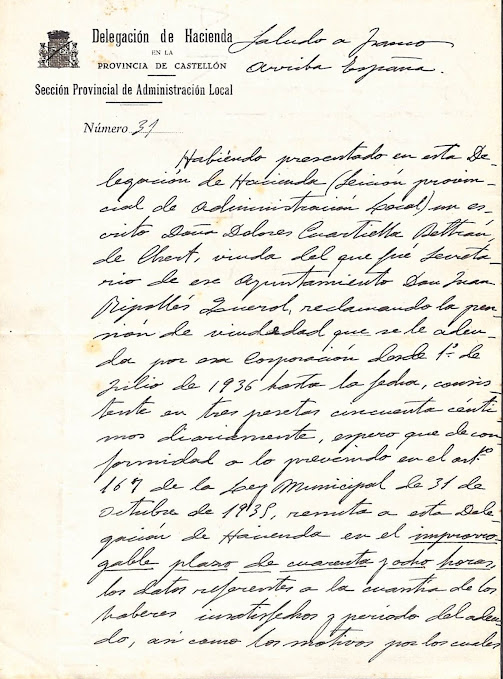 Delegación de Hacienda
EN LA
PROVINCIA DE CASTELLÓN
Sección Provincial de Administración Local
Saludo a Franco
Arriba España.
Número 31
Habiendo presentado en esta De-
legación de Hacienda (Sección provin-
cial de Administración Local) un es-
crito Doña Dolores Cuartiella Beltran
de Chert, viuda del que fué Secreta-
rio de ese Ayuntamiento Don Juan
Ripollés Querol, reclamando la pen-
sión de viudedad que se le adeu-
da por esa Corporación desde 1º de
Julio de 1936 hasta la fecha, consis
tente en tres pesetas cincuenta cénti
mos diariamente, espero que de con
formidad a lo prevenido en el artº
167 de la Ley Municipal de 31 de
Octubre de 1935, remita a esta Dele-
gación de Hacienda en el improrro-
gable plazo de cuarenta y ocho horas,
los datos referentes a la cuantía de los
haberes insatisfechos y periodo del adeu-
do, así como los motivos por los cuales